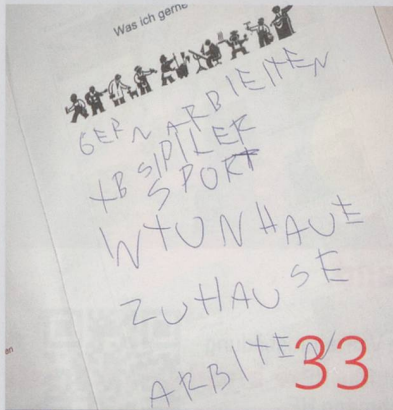 Was ich gerne
GERN ARBIEITEN
XB SIPILER
SPORT
WTUNHAUE
ZUHAUSE
ARBITEN
an
33